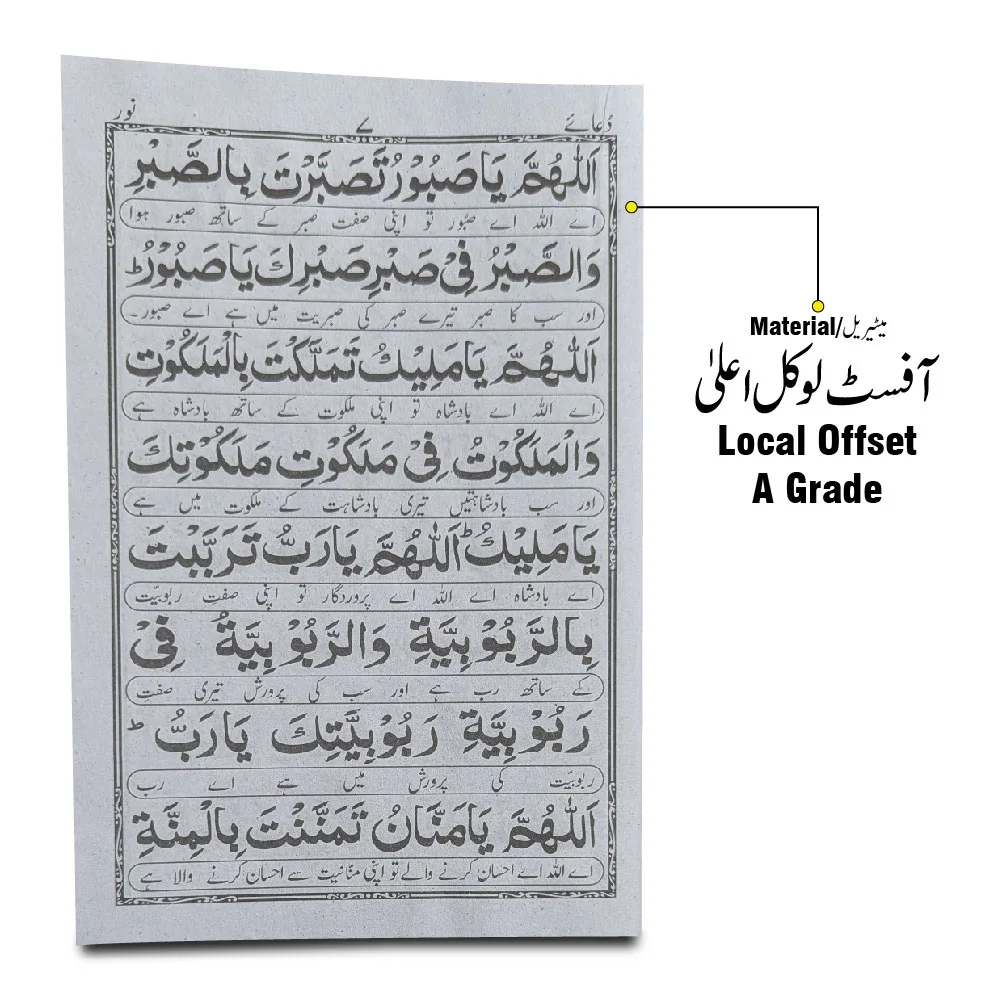 دُعائے ۷ نور
اَللّٰهُمَّ يَا صَبُوْرُ تَصَبَّرْتَ بِالصَّبْرِ
اے اللہ اے صبُور تو اپنی صفت صبر کے ساتھ صبور ہوا
وَالصَّبْرُ فِيْ صَبْرِ صَبْرِكَ يَا صَبُوْرُ ط
اور سب کا صبر تیرے صبر کی صبریت میں ہے اے صبور۔
اَللّٰهُمَّ يَا مَلِيْكُ تَمَلَّكْتَ بِالْمَلَكُوْتِ
اے اللہ اے بادشاہ تو اپنی ملکوت کے ساتھ بادشاہ ہے
وَالْمَلَكُوْتُ فِيْ مَلَكُوْتِ مَلَكُوْتِكَ
اور سب بادشاہتیں تیری بادشاہت کے ملکوت میں ہے
يَا مَلِيْكُ ط اَللّٰهُمَّ يَا رَبُّ تَرَبَّبْتَ
اے بادشاہ اے اللہ اے پروردگار تو اپنی صفتِ ربوبیّت
بِالرَّبُوْبِيَّةِ وَالرَّبُوْبِيَّةُ فِيْ
کے ساتھ رب ہے اور سب کی پرورش تیری صفتِ
رَبُوْبِيَّةِ رَبُوْبِيَّتِكَ يَا رَبُّ ط
ربوبیّت کی پرورش میں ہے اے رب
اَللّٰهُمَّ يَا مَنَّانُ تَمَنَّنْتَ بِالْمِنَّةِ
اے اللہ اے احسان کرنے والے تو اپنی منّانیت سے احسان کرنے والا ہے
Material/میٹیریل
آفسٹ لوکل اعلیٰ
Local Offset
A Grade